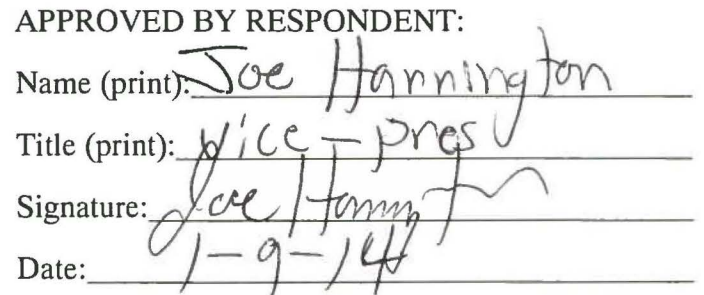 APPROVED BY RESPONDENT:
Name (print): Joe Hannington
Title (print): vice-pres
Signature: Joe Hannington
Date: 1-9-14